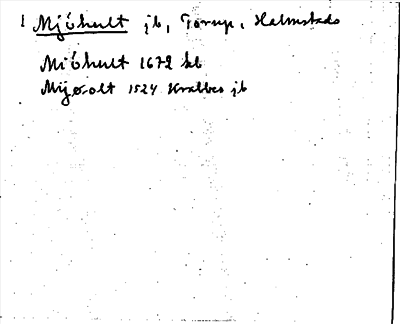 1 Mjöhult jb, Torup, Halmstads
Miöhult 1672 kb
Mijøolt 1524 Krabbes jb